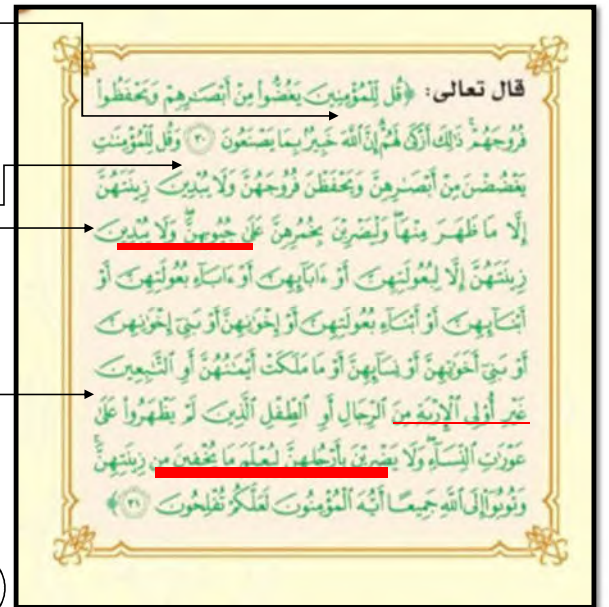 قال تعالى: ﴿قُل لِّلْمُؤْمِنِينَ يَغُضُّوا۟ مِنْ أَبْصَـٰرِهِمْ وَيَحْفَظُوا۟
فُرُوجَهُمْ ۚ ذَٰلِكَ أَزْكَىٰ لَهُمْ ۗ إِنَّ ٱللَّهَ خَبِيرٌۢ بِمَا يَصْنَعُونَ ﴿٣٠﴾ وَقُل لِّلْمُؤْمِنَـٰتِ
يَغْضُضْنَ مِنْ أَبْصَـٰرِهِنَّ وَيَحْفَظْنَ فُرُوجَهُنَّ وَلَا يُبْدِينَ زِينَتَهُنَّ
إِلَّا مَا ظَهَرَ مِنْهَا ۖ وَلْيَضْرِبْنَ بِخُمُرِهِنَّ عَلَىٰ جُيُوبِهِنَّ ۖ وَلَا يُبْدِينَ
زِينَتَهُنَّ إِلَّا لِبُعُولَتِهِنَّ أَوْ ءَابَآئِهِنَّ أَوْ ءَابَآءِ بُعُولَتِهِنَّ أَوْ
أَبْنَآئِهِنَّ أَوْ أَبْنَآءِ بُعُولَتِهِنَّ أَوْ إِخْوَٰنِهِنَّ أَوْ بَنِىٓ إِخْوَٰنِهِنَّ
أَوْ بَنِىٓ أَخَوَٰتِهِنَّ أَوْ نِسَآئِهِنَّ أَوْ مَا مَلَكَتْ أَيْمَـٰنُهُنَّ أَوِ ٱلتَّـٰبِعِينَ
غَيْرِ أُو۟لِى ٱلْإِرْبَةِ مِنَ ٱلرِّجَالِ أَوِ ٱلطِّفْلِ ٱلَّذِينَ لَمْ يَظْهَرُوا۟ عَلَىٰ
عَوْرَٰتِ ٱلنِّسَآءِ ۖ وَلَا يَضْرِبْنَ بِأَرْجُلِهِنَّ لِيُعْلَمَ مَا يُخْفِينَ مِن زِينَتِهِنَّ ۚ
وَتُوبُوٓا۟ إِلَى ٱللَّهِ جَمِيعًا أَيُّهَ ٱلْمُؤْمِنُونَ لَعَلَّكُمْ تُفْلِحُونَ ﴿٣١﴾﴾